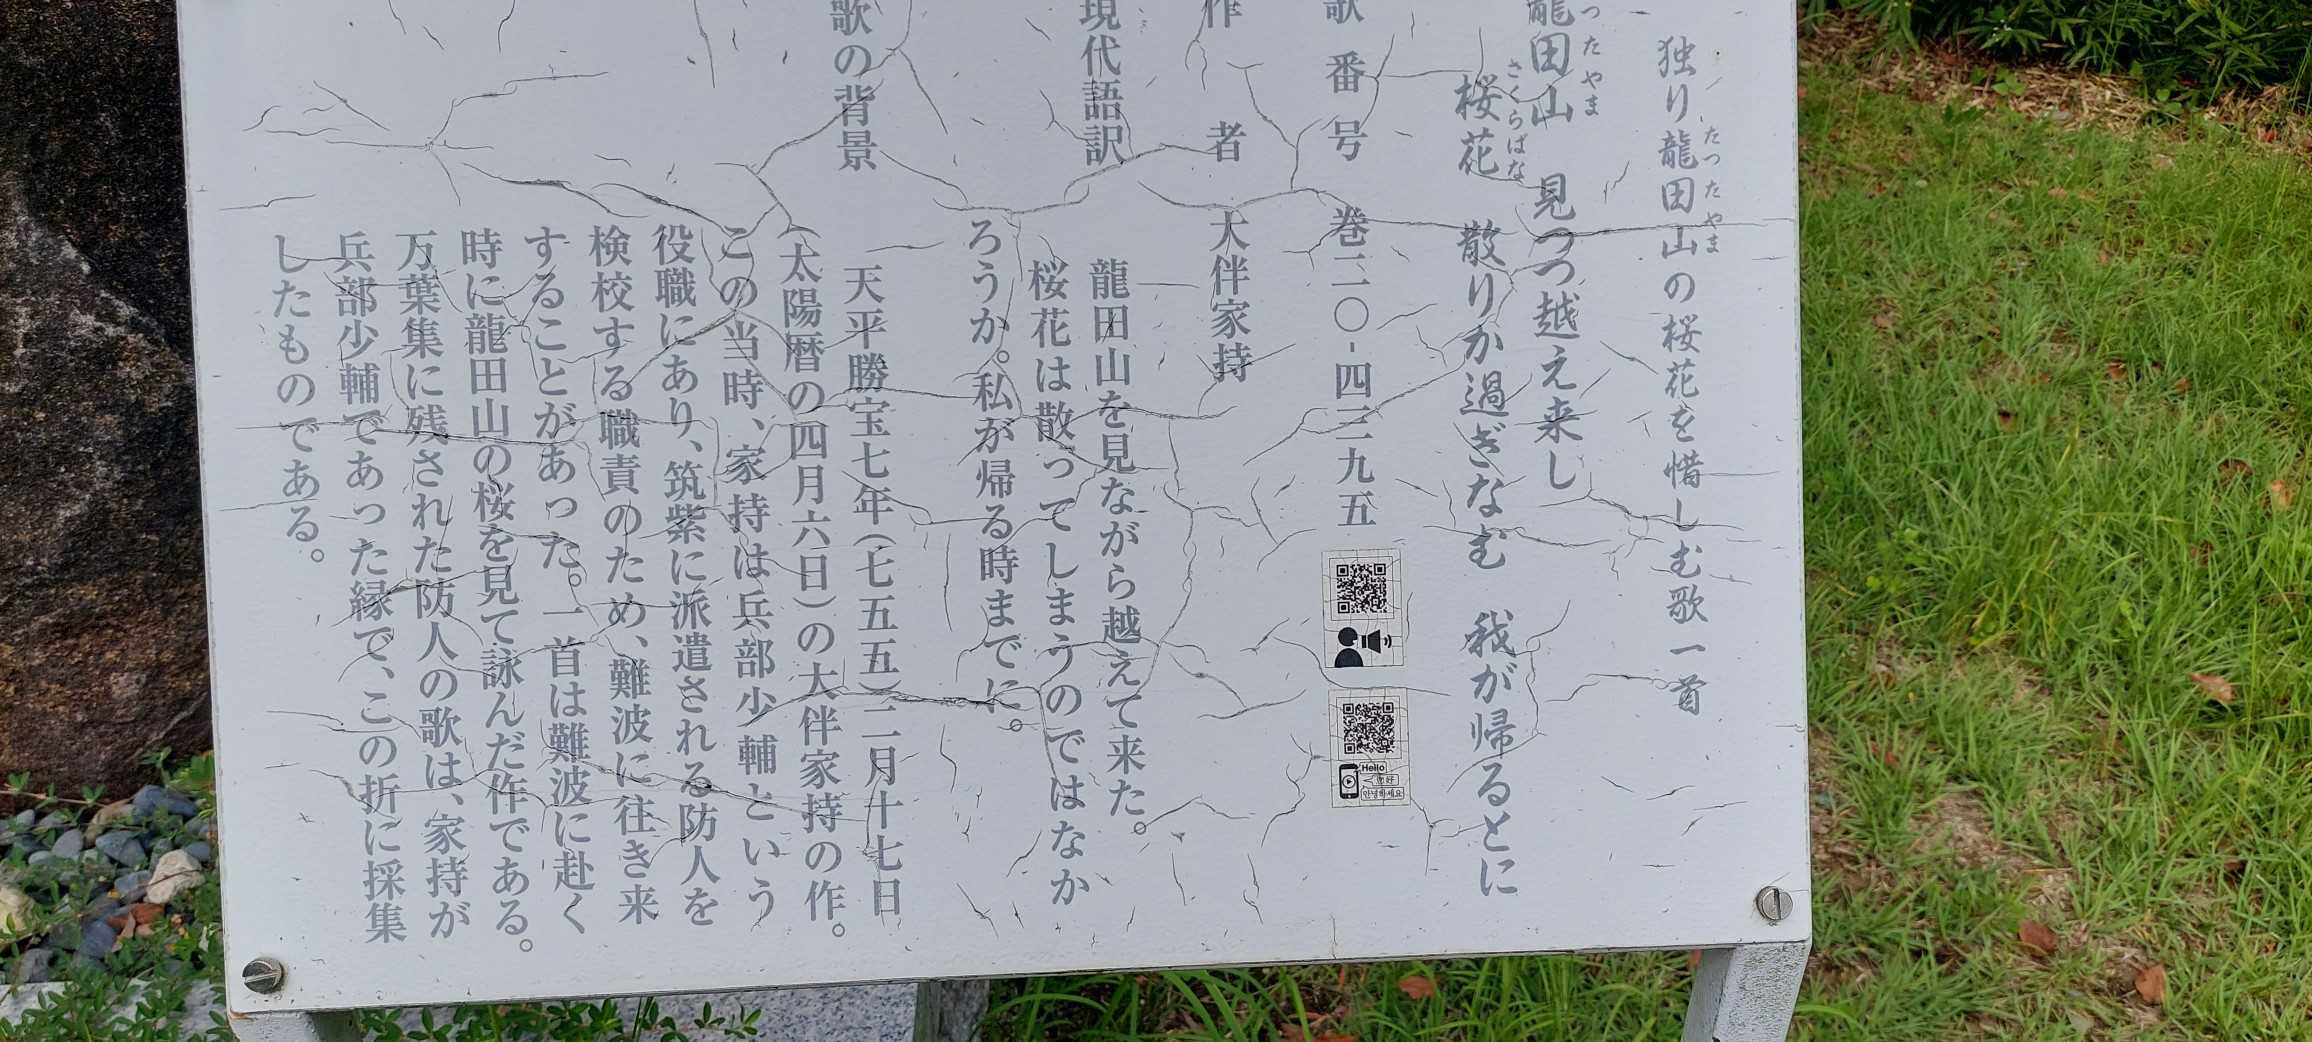 独り龍田山の桜花を惜しむ歌一首
たつたやま
龍田山 見つつ越え来し
つたやま
桜花 散りか過ぎなむ 我が帰るとに
さくらばな
歌番号 巻二〇-四三九五
作者 大伴家持
現代語訳 龍田山を見ながら越えて来た。
桜花は散ってしまうのではなか
ろうか。私が帰る時までに。
歌の背景 天平勝宝七年(七五五)二月十七日
(太陽暦の四月六日)の大伴家持の作。
この当時、家持は兵部少輔という
役職にあり、筑紫に派遣される防人を
検校する職責のため、難波に往き来
することがあった。一首は難波に赴く
時に龍田山の桜を見て詠んだ作である。
万葉集に残された防人の歌は、家持が
兵部少輔であった縁で、この折に採集
したものである。
Hello
你好
안녕하세요